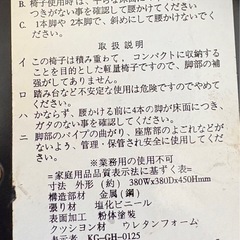 B. 椅子使用時は、平らな床面に
つきがない事を確認して腰かけてください
C. 1本脚や2本脚で、斜めにして腰かけないで
ください。
取扱説明
イ この椅子は積み重ねて、コンパクトに収納する
ことを目的とした軽量椅子ですので、脚部の補
強がしてありません。
ロ 踏み台など不安定な使用は危険ですのでやめて
ください。
ハ かならず、腰かける前に4本の脚が床面につき、
ガタのない事を確認してください。
ニ 脚部のパイプの曲がり、座席部のよごれなどがな
いよう、管理・保管され安全に使用してください。
※業務用の使用不可
=家庭用品品質表示法に基ずく表=
寸法 外形(約)380W×380D×450Hmm
構造部材 金属(鋼)
張り材 塩化ビニール
表面加工 粉体塗装
クッション材 ウレタンフォーム
表示者 KG-GH-0125